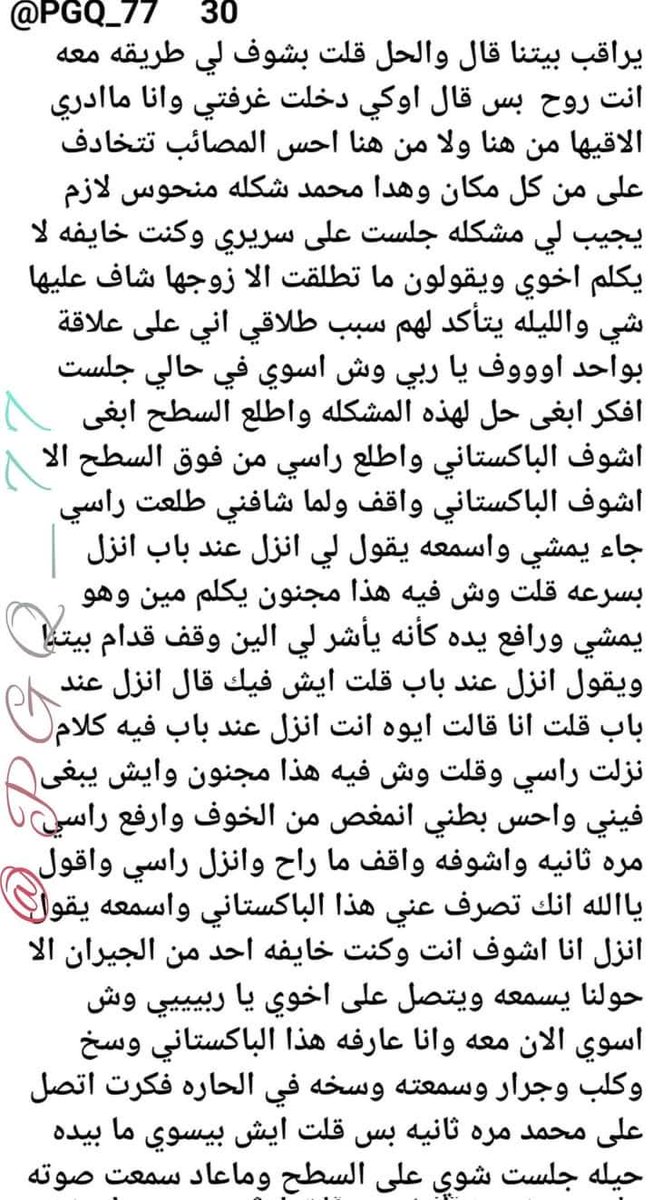 @PGQ_77 30
يراقب بيتنا قال والحل قلت بشوف لي طريقه معه
انت روح بس قال اوكي دخلت غرفتي وانا ماادري
الاقيها من هنا ولا من هنا احس المصائب تتخادف
على من كل مكان وهدا محمد شكله منحوس لازم
يجيب لي مشكله جلست على سريري وكنت خايفه لا
يكلم اخوي ويقولون ما تطلقت الا زوجها شاف عليها
شي والليله يتأكد لهم سبب طلاقي اني على علاقة
بواحد اوووف يا ربي وش اسوي في حالي جلست
افكر ابغى حل لهذه المشكله واطلع السطح ابغى
اشوف الباكستاني واطلع راسي من فوق السطح الا
اشوف الباكستاني واقف ولما شافني طلعت راسي
جاء يمشي واسمعه يقول لي انزل عند باب انزل
بسرعه قلت وش فيه هذا مجنون يكلم مين وهو
يمشي ورافع يده كأنه يأشر لي الين وقف قدام بيتنا
ويقول انزل عند باب قلت ايش فيك قال انزل عند
باب قلت انا قالت ايوه انت انزل عند باب فيه كلام
نزلت راسي وقلت وش فيه هذا مجنون وايش يبغى
فيني واحس بطني انمغص من الخوف وارفع راسي
مره ثانيه واشوفه واقف ما راح وانزل راسي واقول
ياالله انك تصرف عني هذا الباكستاني واسمعه يقول
انزل انا اشوف انت وكنت خايفه احد من الجيران الا
حولنا يسمعه ويتصل على اخوي يا ربيييي وش
اسوي الان معه وانا عارفه هذا الباكستاني وسخ
وكلب وجرار وسمعته وسخه في الحاره فكرت اتصل
على محمد مره ثانيه بس قلت ايش بيسوي ما بيده
حيله جلست شوي على السطح وماعاد سمعت صوته
@PGQ_77